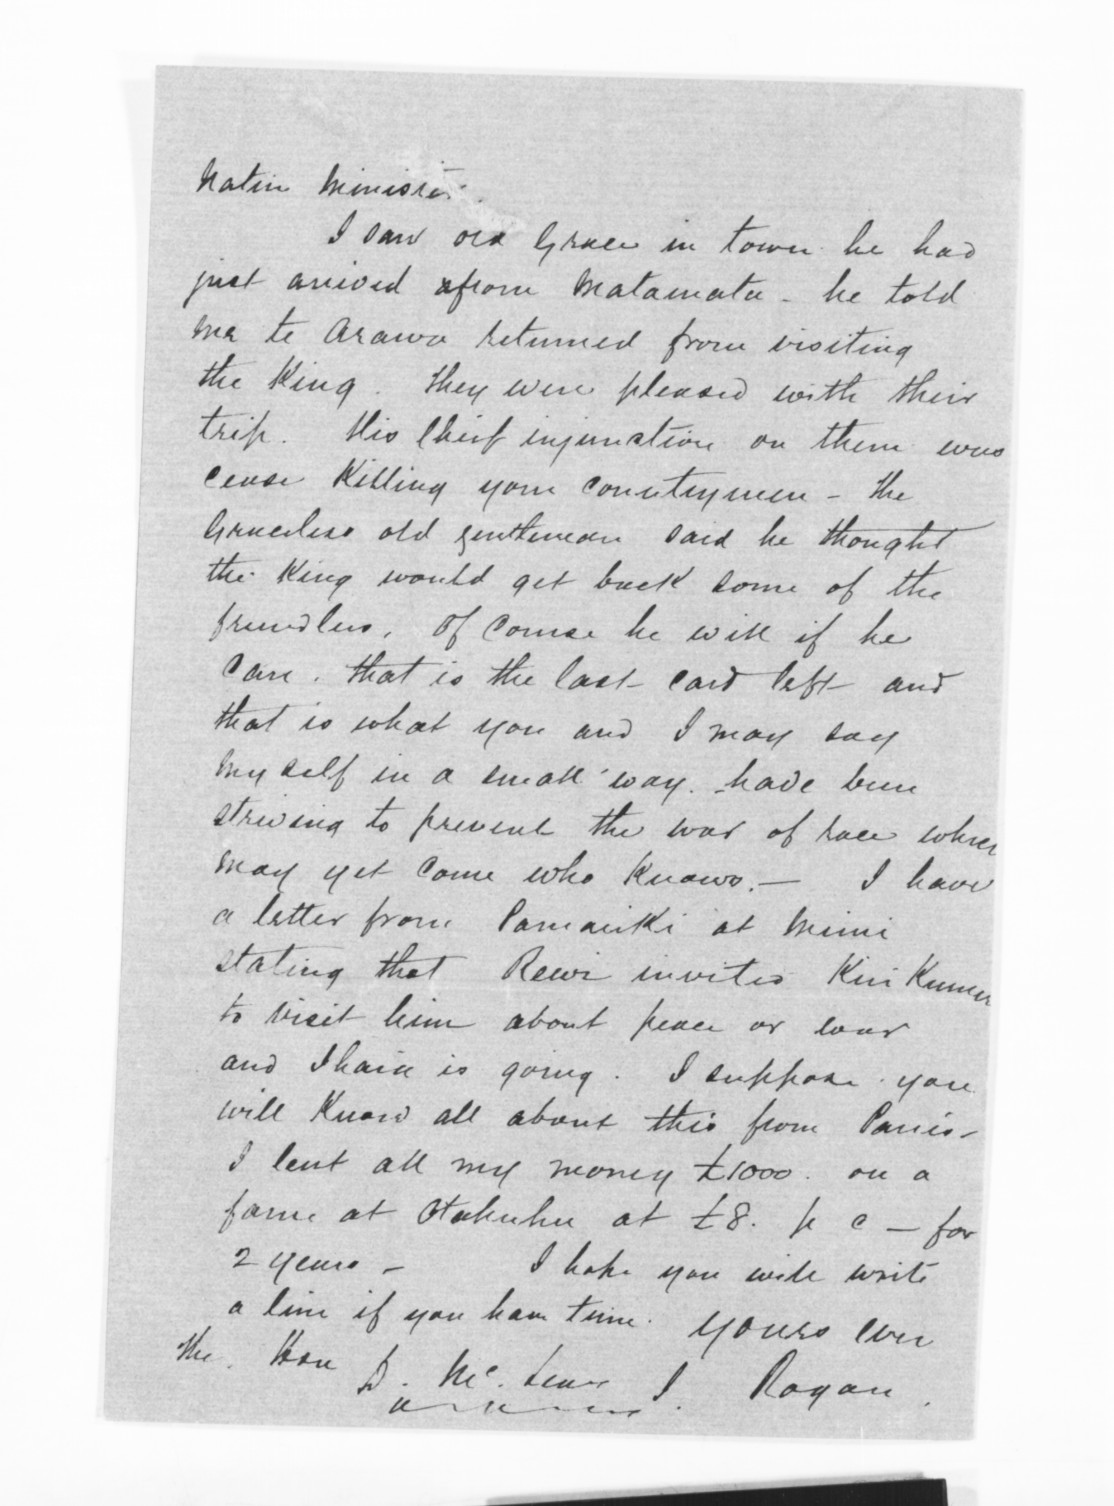 Native Minister.
I saw old Grace in town he had
just arrived from Matamata - he told
me te Arawa returned from visiting
the King. They were pleased with their
trip. His Chief injunction on them was
cease Killing your countrymen - the
Graceless old gentleman said he thought
the King would get back some of the
friendlies. Of Course he will if he
Can. that is the last card left and
that is what you and I may say
myself in a small way. have been
striving to prevent the war of race which
may yet come who Knows. — I have
a letter from at Mimi
stating that Rewi invites
to visit him about peace or war
and Ihaia is going. I suppose you
will Know all about this from Parris -
I lent all my money £1000. on a
farm at Otahuhu at £8. p c — for
2 years - I hope you will write
a line if you have time. yours ever
The. Hon D. McLean J Rogan.